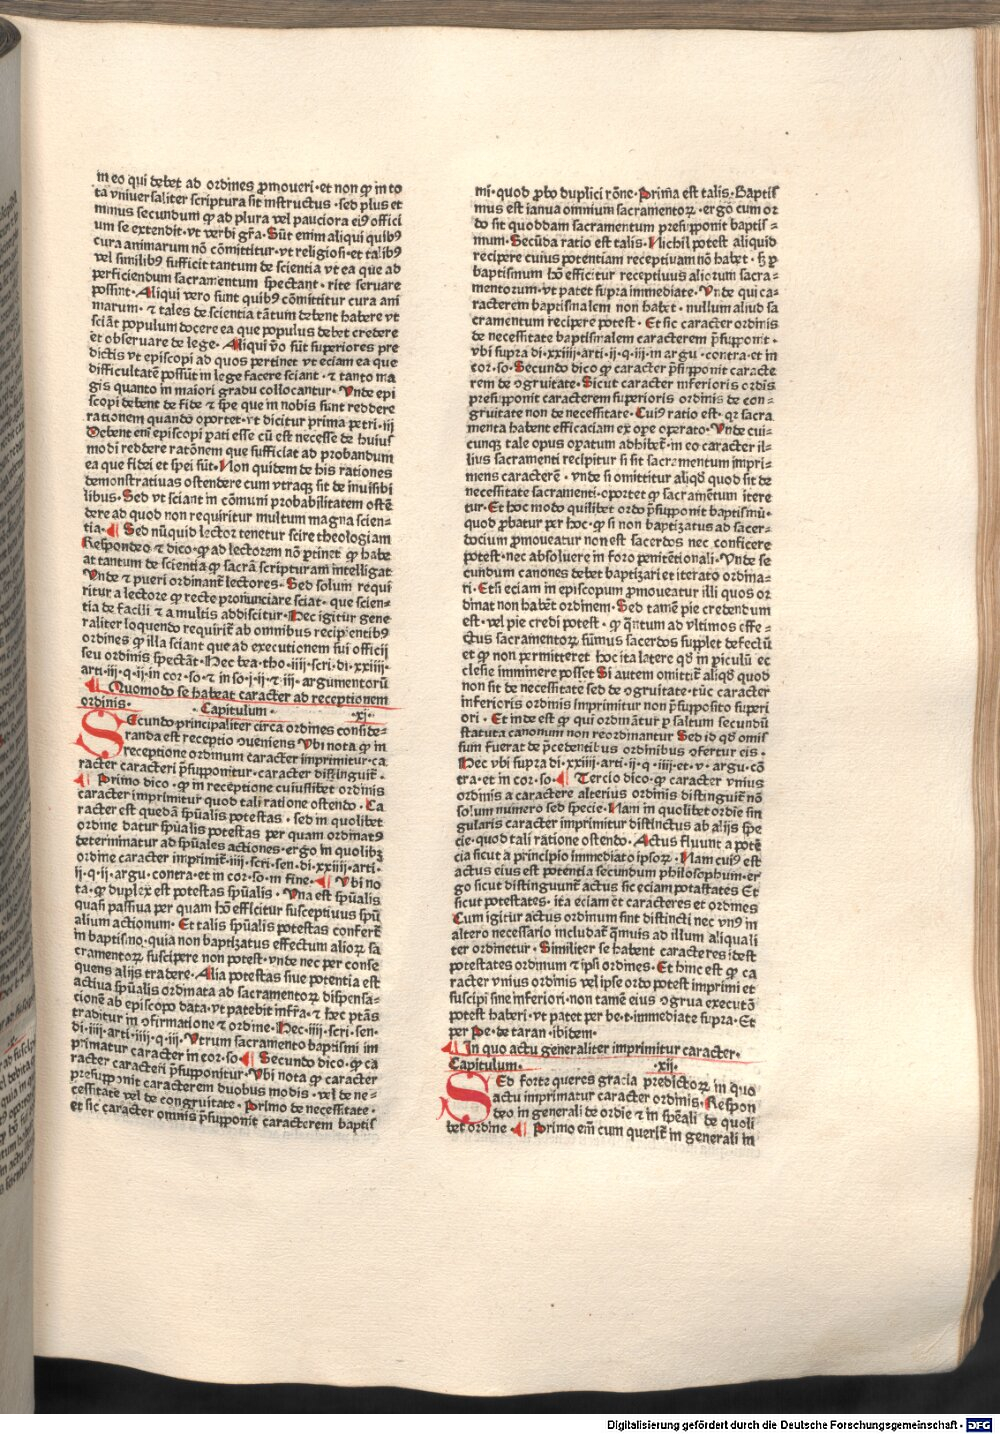 in eo qui debet ad ordines ꝓmoueri·et non ꝙ in to
ta vniuersaliter scriptura sit instructus·sed plus et
minus secundum ꝙ ad plura vel pauciora eiꝰ offici
um se extendit·vt verbi gr̄a·Sūt enim aliqui quibꝰ
cura animarum nō cōmittitur·vt religiosi·et talibꝰ
vel similibꝰ sufficit tantum de scientia vt ea que ad
perficiendum sacramentum spectant·rite seruare
possint·Aliqui vero sunt quibꝰ cōmittitur cura ani
marum·⁊ tales de scientia tātum debent habere vt
sciāt populum docere ea que populus debet credere
et obseruare de lege·Aliqui v̄o sūt superiores pre
dictis vt episcopi ad quos pertinet vt eciam ea que
difficultatem possūt in lege facere sciant·⁊ tanto ma
gis quanto in maiori gradu collocantur·Vnde epi
scopi debent de fide ⁊ spe que in nobis sunt reddere
rationem quando oportet·vt dicitur prima petri·iij
Debent em̄ episcopi ꝑati esse cū est necesse de huius
modi reddere ratōnem que sufficiat ad probandum
ea que fidei et spei sūt·Non quidem de his rationes
demonstratiuas ostendere cum vtraqꝫ sit de inuisibi
libus·Sed vt sciant in cōmuni probabilitatem ostē
dere ad quod non requiritur multum magna scien-
tia·¶ Sed nūquid lector tenetur scire theologiam
Respondeo ⁊ dico·ꝙ ad lectorem nō ꝑtinet ꝙ habe
at tantum de scientia ꝙ sacrā scripturam intelligat
Vnde ⁊ pueri ordinant̄ lectores·Sed solum requi
ritur a lectore ꝙ recte pronunciare sciat·que scien-
tia de facili ⁊ a multis addiscitur·Hec igitur gene
raliter loquendo requirit̄ ab omnibus recipientibꝰ
ordines ꝙ illa sciant que ad executionem sui officij
seu ordinis spectāt·Hec bea·tho·iiij·scri·di·xxiiij·
arti·iij·q·ij·in cor·so·⁊ in so·j·ij·⁊ iij·argumentorū
¶ Quomodo se habeat caracter ad receptionem
ordinis· ·Capitulum· ·xj·
Secundo principaliter circa ordines conside-
randa est receptio ↄueniens Vbi nota ꝙ in
receptione ordinum caracter imprimitur·ca
racter caracteri p̄supponitur·caracter distinguit̄·
¶ Primo dico·ꝙ in receptione cuiuslibet ordinis
caracter imprimitur quod tali ratione ostendo·Ca
racter est quedā spūalis potestas·sed in quolibet
ordine datur spūalis potestas per quam ordinatꝰ
determinatur ad spūales actiones·ergo in quolibꝫ
ordine caracter imprimit̄·iiij·scri·sen·di·xxiiij·arti·
ij·q·ij·argu·contra·et in cor·so·in fine·¶ Vbi no
ta·ꝙ duplex est potestas spūalis·Vna est spūalis
quasi passiua per quam hō efficitur susceptiuus spū
alium actionum·Et talis spūalis potestas confert̄
in baptismo·quia non baptizatus effectum alioꝝ sa
cramentoꝝ suscipere non potest·vnde nec per conse
quens alijs tradere·Alia potestas siue potentia est
actiua spūalis ordinata ad sacramentoꝝ dispensa-
tionē ab episcopo data·vt patebit infra·⁊ hec ptās
traditur in ↄfirmatione ⁊ ordine·Hec·iiij·scri·sen·
di·iiij·arti·iiij·q·iij·Vtrum sacramento baptismi im
primatur caracter in cor·so·¶ Secundo dico·ꝙ ca
racter caracteri p̄supponitur·Vbi nota ꝙ caracter
presupponit caracterem duobus modis·vel de ne-
cessitate vel de congruitate·Primo de necessitate·
et sic caracter omnis p̄supponit caracterem baptis
mi·quod ꝓbo duplici rōne·Prima est talis·Baptis
mus est ianua omnium sacramentoꝝ·ergo cum or
do sit quoddam sacramentum presupponit baptis-
mum·Secūda ratio est talis·Nichil potest aliquid
recipere cuius potentiam receptiuam nō habet·sꝫ ꝑ
baptismum hō efficitur receptiuus aliorum sacra-
mentorum·vt patet supra immediate·Vnde qui ca-
racterem baptismalem non habet·nullum aliud sa
cramentum recipere potest·Et sic caracter ordinis
de necessitate baptismalem caracterem p̄supponit·
vbi supra di·xxiiij·arti·ij·q·iij·in argu·contra·et in
cor·so·Secundo dico ꝙ caracter p̄supponit caracte
rem de ↄgruitate·Sicut caracter inferioris ordīs
presupponit caracterem superioris ordinis de con-
gruitate non de necessitate·Cuiꝰ ratio est·qꝛ sacra
menta habent efficaciam ex ope operato·Vnde cui-
cunqꝫ tale opus oꝑatum adhibet̄·in eo caracter il-
lius sacramenti recipitur si sit sacramentum impri-
mens caracterē·vnde si omittitur aliqd quod sit de
necessitate sacramenti·oportet ꝙ sacramētum itere
tur·Et hoc modo quilibet ordo p̄supponit baptismū·
quod ꝓbatur per hoc·ꝙ si non baptizatus ad sacer-
docium ꝓmoueatur non est sacerdos nec conficere
potest·nec absoluere in foro penitētionali·Vnde se
cundum canones debet baptizari et iterato ordina-
ri·Etsi eciam in episcopum ꝓmoueatur illi quos or
dinat non habēt ordinem·Sed tamē pie credendum
est·vel pie credi potest·ꝙ q̄ntum ad vltimos effe-
ctus sacramentoꝝ summus sacerdos supplet defectū
et ꝙ non permitteret hoc ita latere qd in ꝑiculū ec
clesie imminere posset Si autem omittit̄ aliqd quod
non sit de necessitate sed de ↄgruitate·tūc caracter
inferioris ordinis imprimitur non p̄supposito superi
ori·Et inde est ꝙ qui ordinātur ꝑ saltum secundū
statuta canonum non reordinantur Sed id qd omis
sum fuerat de p̄cedentibus ordinibus ↄfertur eis·
Hec vbi supra di·xxiiij·arti·ij·q·iiij·et·v·argu·cō
tra·et in cor·so·¶ Tercio dico·ꝙ caracter vnius
ordinis a caractere alterius ordinis distinguit̄ nō
solum numero sed specie·Nam in quolibet ordie sin
gularis caracter imprimitur distinctus ab alijs spe
cie·quod tali ratione ostendo·Actus fluunt a potē
cia sicut a principio immediato ipsoꝝ·Nam cuiꝰ est
actus eius est potentia secundum philosophum·er
go sicut distinguunt̄ actus sic eciam potastates Et
sicut potestates·ita eciam et caracteres et ordines
Cum igitur actus ordinum sint distincti nec vnꝰ in
altero necessario includat̄ q̄muis ad illum aliquali
ter ordinetur·Similiter se habent caracteres idest
potestates ordinum ⁊ ipsi ordines·Et hinc est ꝙ ca
racter vnius ordinis vel ipse ordo potest imprimi et
suscipi sine inferiori·non tamē eius ↄgrua executō
potest haberi·vt patet per be·t·immediate supra·Et
per Pe·de taran·ibidem·
¶ In quo actu generaliter imprimitur caracter·
Capitulum· ·xij·
Sed forte queres gracia predictoꝝ in quo
actu imprimatur caracter ordinis·Respon
deo in generali de ordie ⁊ in spēali de quoli
bet ordine·¶ Primo em̄ cum querit̄ in generali in
Digitalisierung gefördert durch die Deutsche Forschungsgemeinschaft - DFG